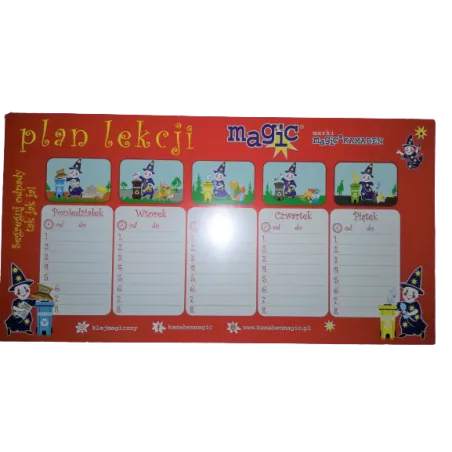 plan lekcji
magic®
marki
magic KAMADEN
Segreguj odpady
tak jak ja!
Poniedziałek
od do
1.
2.
3.
4.
5.
6.
7.
8.
Wtorek
od do
1.
2.
3.
4.
5.
6.
7.
8.
Czwartek
od do
1.
2.
3.
4.
5.
6.
7.
8.
Piątek
od do
1.
2.
3.
4.
5.
6.
7.
8.
klejmagiczny
kamadenmagic
www.kamadenmagic.pl